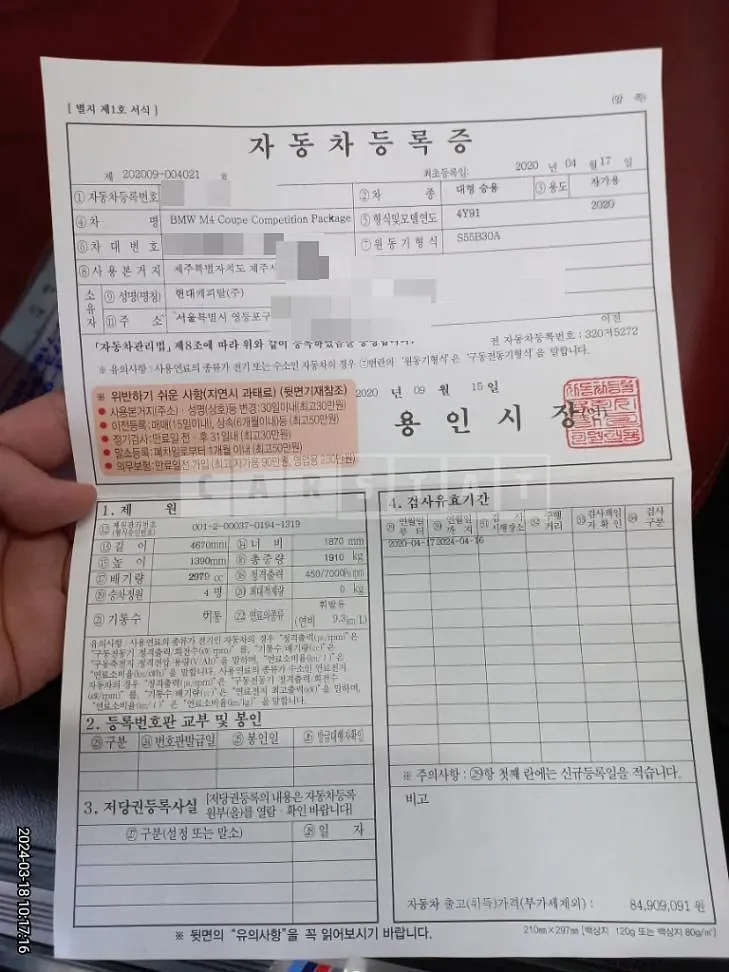 [ 별지 제1호 서식 ]
(앞 쪽)
자 동 차 등 록 증
제 202009-004021 호
최초등록일: 2020 년 04 월 17 일
① 자동차등록번호
② 차 종 대형 승용 ③ 용도 자가용
④ 차 명 BMW M4 Coupe Competition Package ⑤ 형식및모델연도 4Y91 2020
⑥ 차 대 번 호 ⑦ 원동기형식 S55B30A
⑧ 사용본거지 제주특별자치도 제주시
소유자 ⑨ 성명(명칭) 현대캐피탈(주)
⑪ 주 소 서울특별시 영등포구
이전
「자동차관리법」 제8조에 따라 위와 같이 등록하였음을 증명합니다.
전 자동차등록번호 : 320저5272
※ 유의사항 : 사용연료의 종류가 전기 또는 수소인 자동차의 경우 ⑦란의 '원동기형식'은 '구동전동기형식'을 말합니다.
※ 위반하기 쉬운 사항(지연시 과태료) (뒷면기재참조)
● 사용본거지(주소) · 성명(상호)등 변경: 30일이내(최고30만원)
● 이전등록 : 매매(15일이내), 상속(6개월이내)등 (최고50만원)
● 정기검사: 만료일 전 · 후 31일내 (최고30만원)
● 말소등록 : 폐차일로부터 1개월 이내 (최고50만원)
● 의무보험: 만료일전 가입 (최고:자가용 90만원, 영업용 230만원)
2020 년 09 월 15 일
용 인 시 장 (인)
CARSTAT
1. 제 원
⑫ 제원관리번호 (형식승인번호) 001-2-00037-0194-1319
⑬ 길 이 4670mm ⑭ 너 비 1870 mm
⑮ 높 이 1390mm ⑯ 총중량 1910 kg
⑰ 배기량 2979 cc ⑱ 정격출력 450/7000
⑲ 승차정원 4 명 ⑳ 최대적재량 0 kg
㉑ 기통수 6기통 ㉒ 연료의종류 휘발유
(연비 9.3㎞/L)
유의사항 : 사용연료의 종류가 전기인 자동차의 경우 "정격출력(ps/rpm)"은
"구동전동기 정격출력/회전수(kW/rpm)" 를, "기통수 배기량(cc)"은
"구동축전지 정격전압·용량(V/Ah)"을 말하며, "연료소비율(km/ℓ)"은
"연료소비율(km/kWh)"을 말합니다. 사용연료의 종류가 수소인 연료전지
자동차의 경우 "정격출력(ps/rpm)"은 "구동전동기 정격출력/회전수
(kW/rpm)" 를, "기통수 배기량(cc)"은 "연료전지 최고출력(kW)"을 말하며,
"연료소비율(km/ℓ)"은 "연료소비율(km/kg)"을 말합니다.
2. 등록번호판 교부 및 봉인
㉓ 구분 ㉔ 번호판발급일 ㉕ 봉인일 ㉖ 발급대행자확인
3. 저당권등록사실 [저당권등록의 내용은 자동차등록
원부(을)를 열람 · 확인 바랍니다]
㉗ 구분(설정 또는 말소) ㉘ 일 자
4. 검사유효기간
㉙ 연월일 부터 ㉚ 연월일 까지 ㉛ 검 사 시행장소 ㉜ 주행 거리 ㉝ 검사책임 자 확 인 ㉞ 검사 구분
2020-04-17 2024-04-16
※ 주의사항 : ㉙항 첫째 란에는 신규등록일을 적습니다.
비고
자동차 출고(취득)가격(부가세제외) : 84,909,091 원
※ 뒷면의 "유의사항"을 꼭 읽어보시기 바랍니다.
210㎜×297㎜ [백상지 120g 또는 백상지 80g/㎡]
2024-03-18 10:17:16